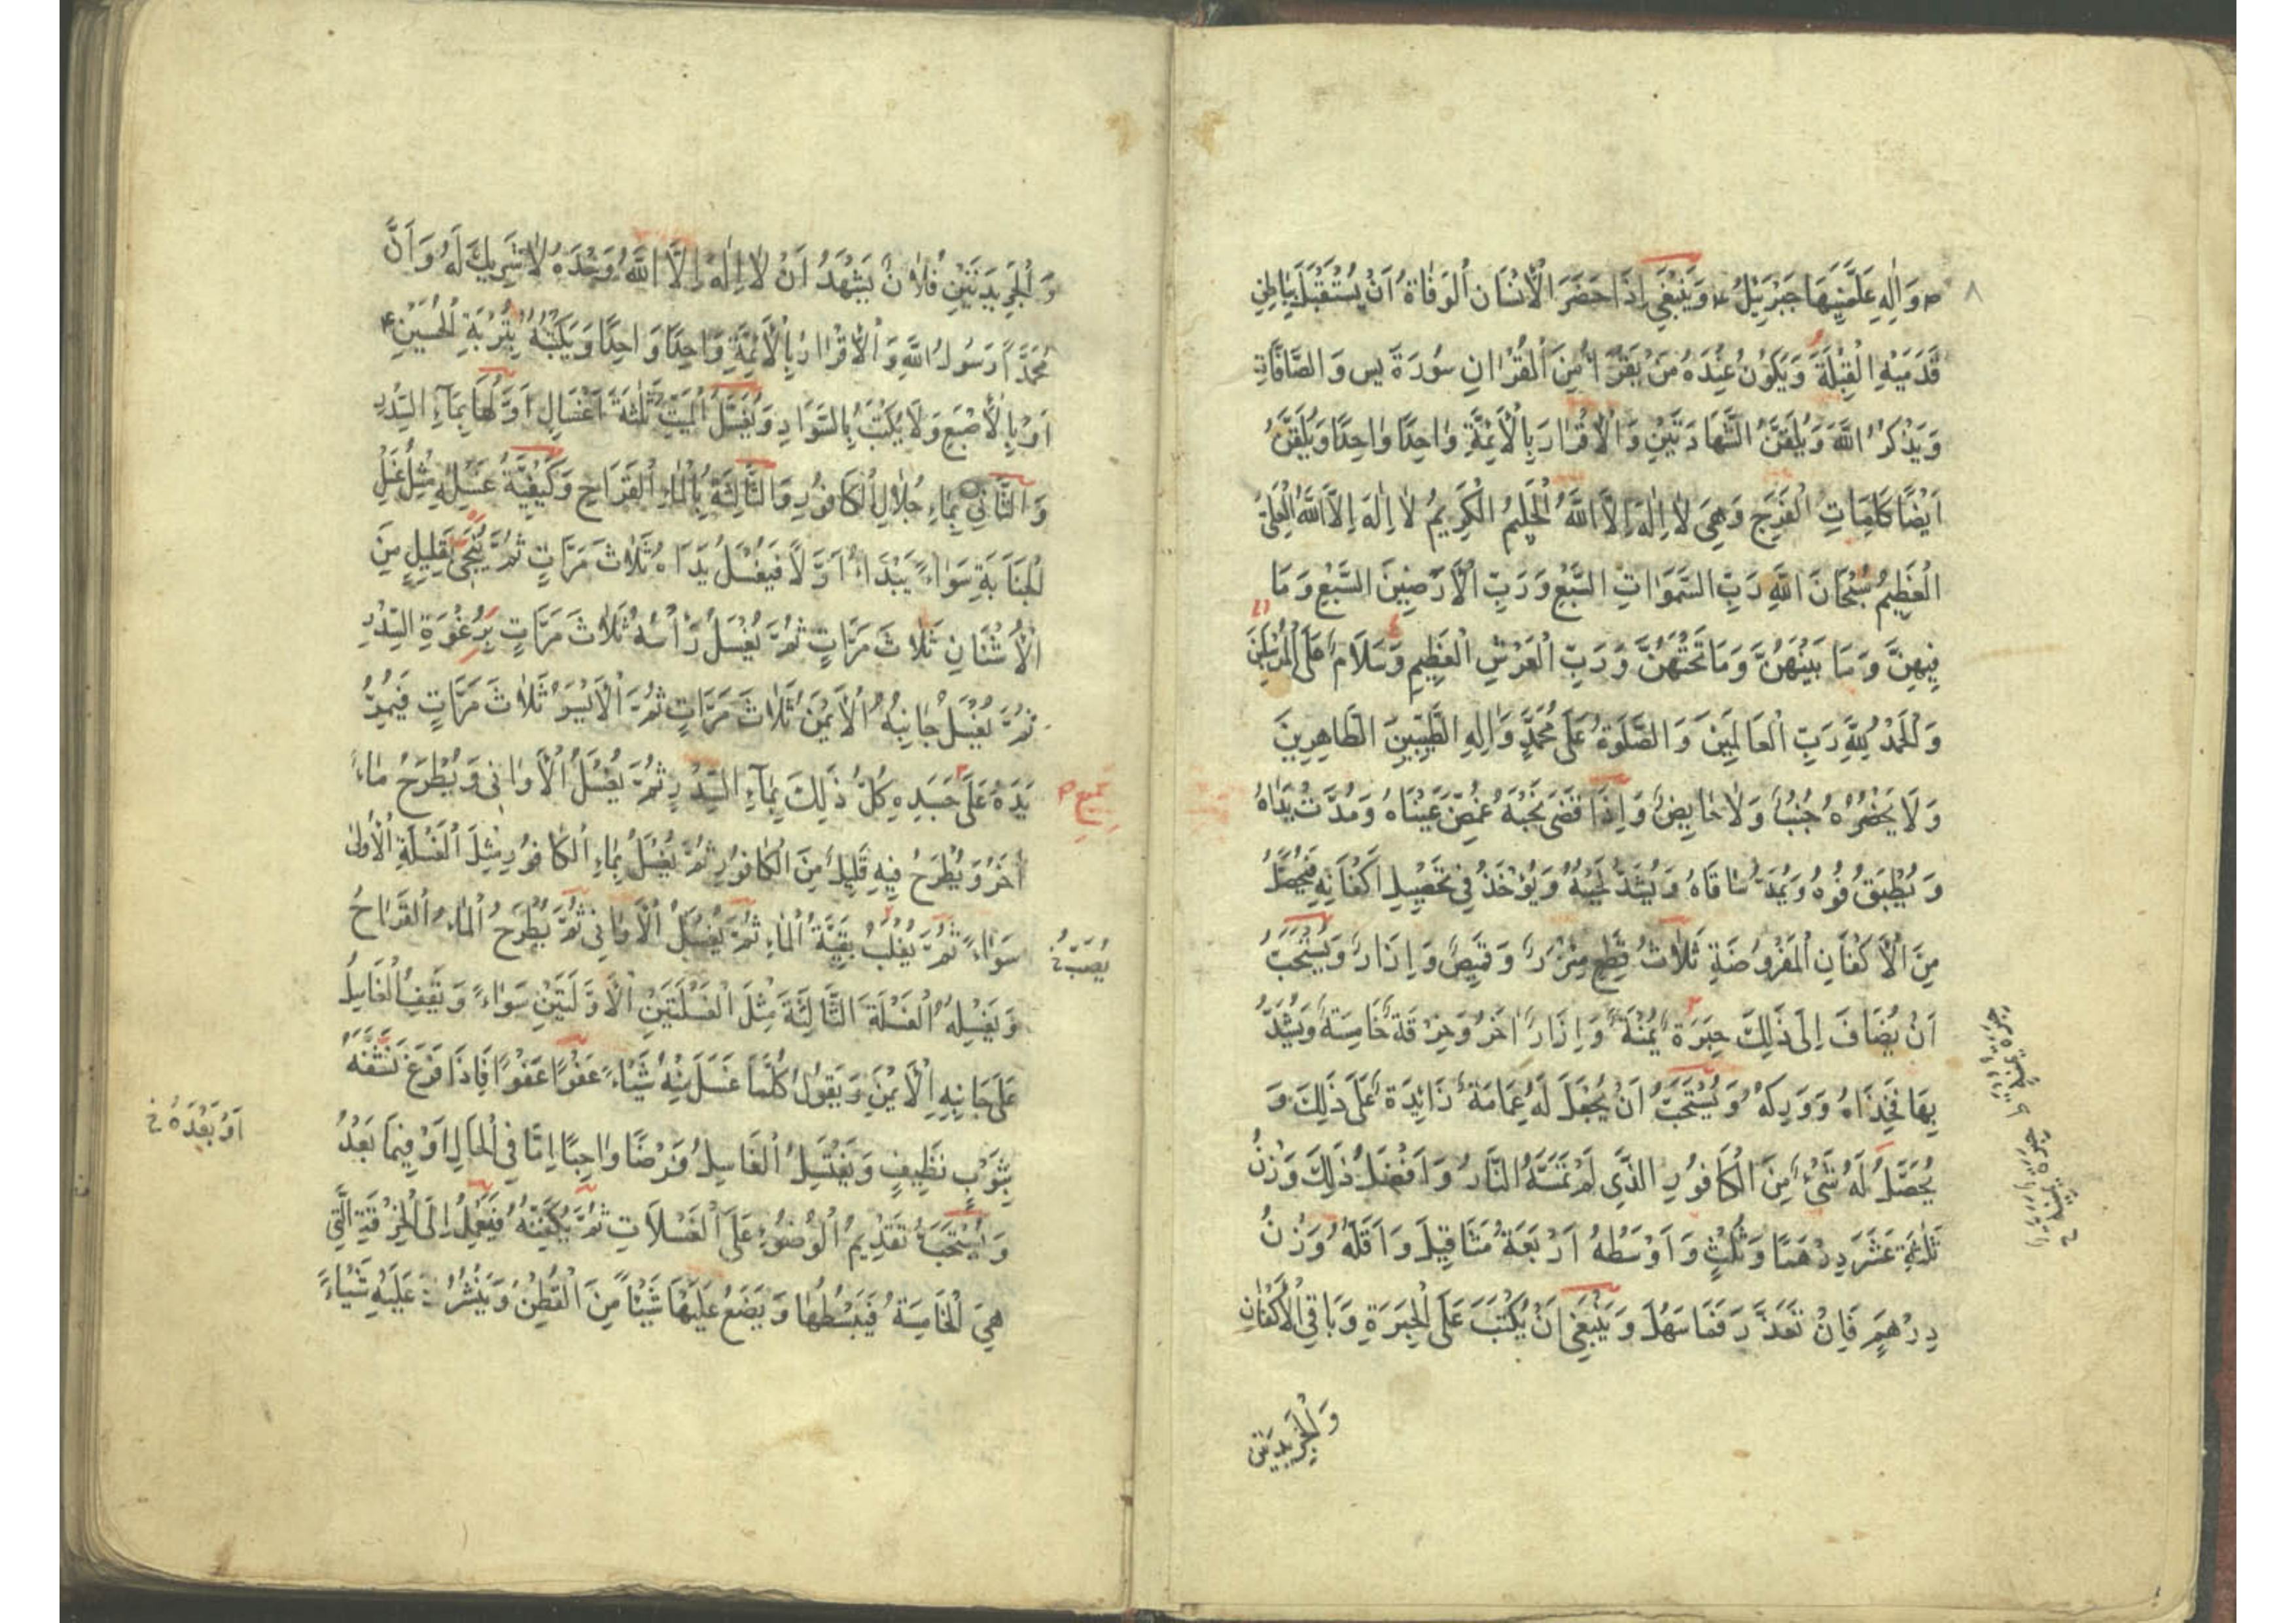 ٨
ص وَاٰلِهِ عَلَّمَنِيهَا جَبْرَئِيلُ ع وَيَنْبَغِي اِذَا حَضَرَ الْاِنْسَانَ الْوَفَاةُ اَنْ يُسْتَقْبَلَ بِبَاطِنِ
قَدَمَيْهِ الْقِبْلَةَ وَيَكُونُ عِنْدَهُ مَنْ يَقْرَأُ مِنَ الْقُرْاٰنِ سُورَةَ يس وَالصَّافَّاتِ
وَيَذْكُرُ اللَّهَ وَيُلَقَّنُ الشَّهَادَتَيْنِ وَالْاِقْرَارَ بِالْاَئِمَّةِ وَاحِدًا وَاحِدًا وَيُلَقَّنُ
اَيْضًا كَلِمَاتِ الْفَرَجِ وَهِيَ لَا اِلٰهَ اِلَّا اللَّهُ الْحَلِيمُ الْكَرِيمُ لَا اِلٰهَ اِلَّا اللَّهُ الْعَلِيُّ
الْعَظِيمُ سُبْحَانَ اللَّهِ رَبِّ السَّمَوَاتِ السَّبْعِ وَرَبِّ الْاَرَضِينَ السَّبْعِ وَمَا
فِيهِنَّ وَمَا بَيْنَهُنَّ وَمَا تَحْتَهُنَّ وَرَبِّ الْعَرْشِ الْعَظِيمِ وَسَلَامٌ عَلَى الْمُرْسَلِينَ
وَالْحَمْدُ لِلَّهِ رَبِّ الْعَالَمِينَ وَالصَّلٰوةُ عَلَى مُحَمَّدٍ وَاٰلِهِ الطَّيِّبِينَ الطَّاهِرِينَ
وَلَا يَحْضُرُهُ جُنُبٌ وَلَا حَايِضٌ وَاِذَا قَضَى نَحْبَهُ غُمِّضَ عَيْنَاهُ وَمُدَّتْ يَدَاهُ
وَيُطْبَقُ فُوهُ وَيُمَدُّ سَاقَاهُ وَيُشَدُّ لَحْيَهُ وَيُؤْخَذُ فِي تَحْصِيلِ اَكْفَانِهِ فَيُحَصَّلُ
مِنَ الْاَكْفَانِ الْمَفْرُوضَةِ ثَلَاثُ قِطَعٍ مِئْزَرٌ وَقَمِيصٌ وَاِزَارٌ وَيُسْتَحَبُّ
اَنْ يُضَافَ اِلَى ذَلِكَ حِبَرَةٌ يُمْنَةٌ وَاِزَارٌ اٰخَرُ وَخِرْقَةٌ خَامِسَةٌ وَيُشَدُّ
بِهَا فَخِذَاهُ وَوَرِكَهُ وَيُسْتَحَبُّ اَنْ يُجْعَلَ لَهُ عِمَامَةٌ زَائِدَةٌ عَلَى ذَلِكَ وَ
يُحَصَّلُ لَهُ شَيْءٌ مِنَ الْكَافُورِ الَّذِي لَمْ تَمَسَّهُ النَّارُ وَاَفْضَلُ ذَلِكَ وَزْنُ
ثَلٰثَةِ عَشَرَ دِرْهَمًا وَثُلُثٍ وَاَوْسَطُهُ اَرْبَعَةُ مَثَاقِيلَ وَاَقَلُّهُ وَزْنُ
دِرْهَمٍ فَاِنْ تَعَذَّرَ فَمَا سَهُلَ وَيَنْبَغِي اَنْ يُكْتَبَ عَلَى الْحِبَرَةِ وَبَاقِي الْاَكْفَانِ
وَالْجَرِيدَتَيْنِ
وَالْجَرِيدَتَيْنِ فُلَانٌ يَشْهَدُ اَنْ لَا اِلٰهَ اِلَّا اللَّهُ وَحْدَهُ لَا شَرِيكَ لَهُ وَاَنَّ
مُحَمَّدًا رَسُولُ اللَّهِ وَالْاِقْرَارُ بِالْاَئِمَّةِ وَاحِدًا وَاحِدًا وَيَكْتُبُهُ بِتُرْبَةِ الْحُسَيْنِ ع
اَوْ بِالْاَصْبَعِ وَلَا يُكْتَبُ بِالسَّوَادِ وَيُغَسَّلُ الْمَيِّتُ ثَلٰثَةَ اَغْسَالٍ اَوَّلُهَا بِمَآءِ السِّدْرِ
وَالثَّانِي بِمَاءِ جُلَالِ الْكَافُورِ وَالثَّالِثَةُ بِالْمَاءِ الْقَرَاحِ وَكَيْفِيَّةُ غَسْلِهِ مِثْلُ غُسْلِ
الْجَنَابَةِ سَوَاءً يَبْدَاُ اَوَّلًا فَيَغْسِلُ يَدَاهُ ثَلَاثَ مَرَّاتٍ ثُمَّ يُنَجَّى بِقَلِيلٍ مِنَ
الْاُشْنَانِ ثَلَاثَ مَرَّاتٍ ثُمَّ يُغْسَلُ رَأْسُهُ ثَلَاثَ مَرَّاتٍ بِرُغْوَةِ السِّدْرِ
ثُمَّ يُغْسَلُ جَانِبُهُ الْاَيْمَنُ ثَلَاثَ مَرَّاتٍ ثُمَّ الْاَيْسَرُ ثَلَاثَ مَرَّاتٍ فَيُمِرُّ
يَدَهُ عَلَى جَسَدِهِ كُلُّ ذَلِكَ بِمَآءِ السِّدْرِ ثُمَّ يُغْسَلُ الْاَوَانِي وَيُطْرَحُ مَاءٌ
اٰخَرُ وَيُطْرَحُ فِيهِ قَلِيلٌ مِنَ الْكَافُورِ ثُمَّ يُغْسَلُ بِمَاءِ الْكَافُورِ مِثْلَ الْغَسْلَةِ الْاُولَى
سَوَاءً ثُمَّ يُقْلَبُ بَقِيَّةُ الْمَاءِ ثُمَّ يُغْسَلُ الْاَوَانِي ثُمَّ يُطْرَحُ الْمَاءُ الْقَرَاحُ
يُصَبُّ خ
وَيَغْسِلُهُ الْغَسْلَةَ الثَّالِثَةَ مِثْلَ الْغَسْلَتَيْنِ الْاَوَّلَتَيْنِ سَوَاءً وَيَقِفُ الْغَاسِلُ
عَلَى جَانِبِهِ الْاَيْمَنِ وَيَقُولُ كُلَّمَا غَسَلَ مِنْهُ شَيْئًا عَفْوًا عَفْوًا فَاِذَا فَرَغَ نَشَّفَهُ
بِثَوْبٍ نَظِيفٍ وَيَغْتَسِلُ الْغَاسِلُ فَرْضًا وَاجِبًا اِمَّا فِي الْحَالِ اَوْ فِيمَا بَعْدُ
اَوْ بَعْدَهُ خ
وَيُسْتَحَبُّ تَقْدِيمُ الْوُضُوءِ عَلَى الْغَسَلَاتِ ثُمَّ يُكَفِّنُهُ فَيَعْمِدُ اِلَى الْخِرْقَةِ الَّتِي
هِيَ الْخَامِسَةُ فَيَبْسُطُهَا وَيَضَعُ عَلَيْهَا شَيْئًا مِنَ الْقُطْنِ وَيَنْثُرُ عَلَيْهِ شَيْئًا